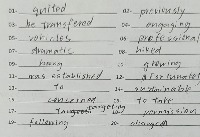 01- quilted 02- previously
03- be transfered 04- engaging
05- vehicles 06- professional
07- dramatic 08- hiked
09- hung 10- glowing
11- was established 12-
13- To 14- sustainable
15- concerned 16- to take
17- targeting 18- permission
19- following 20- changed